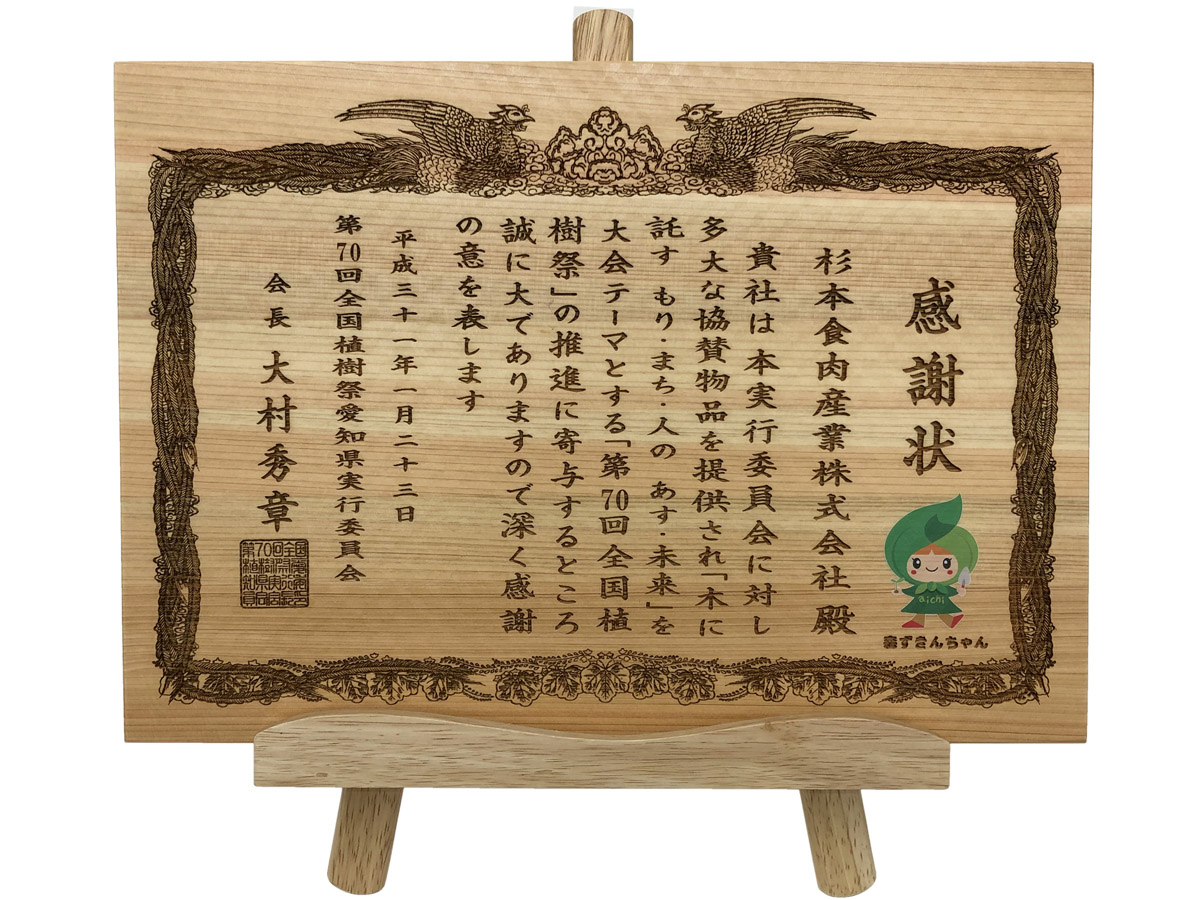 感謝状
杉本食肉産業株式会社 殿
貴社は 本実行委員会に対し
多大な協賛物品を提供され「木に
託す もり・まち・人の あす・未来」を
大会テーマとする「第70回全国植
樹祭」の推進に寄与するところ
誠に大でありますので深く感謝
の意を表します
平成三十一年一月二十三日
第70回全国植樹祭愛知県実行委員会
会長 大村秀章
aichi
ずきんちゃん